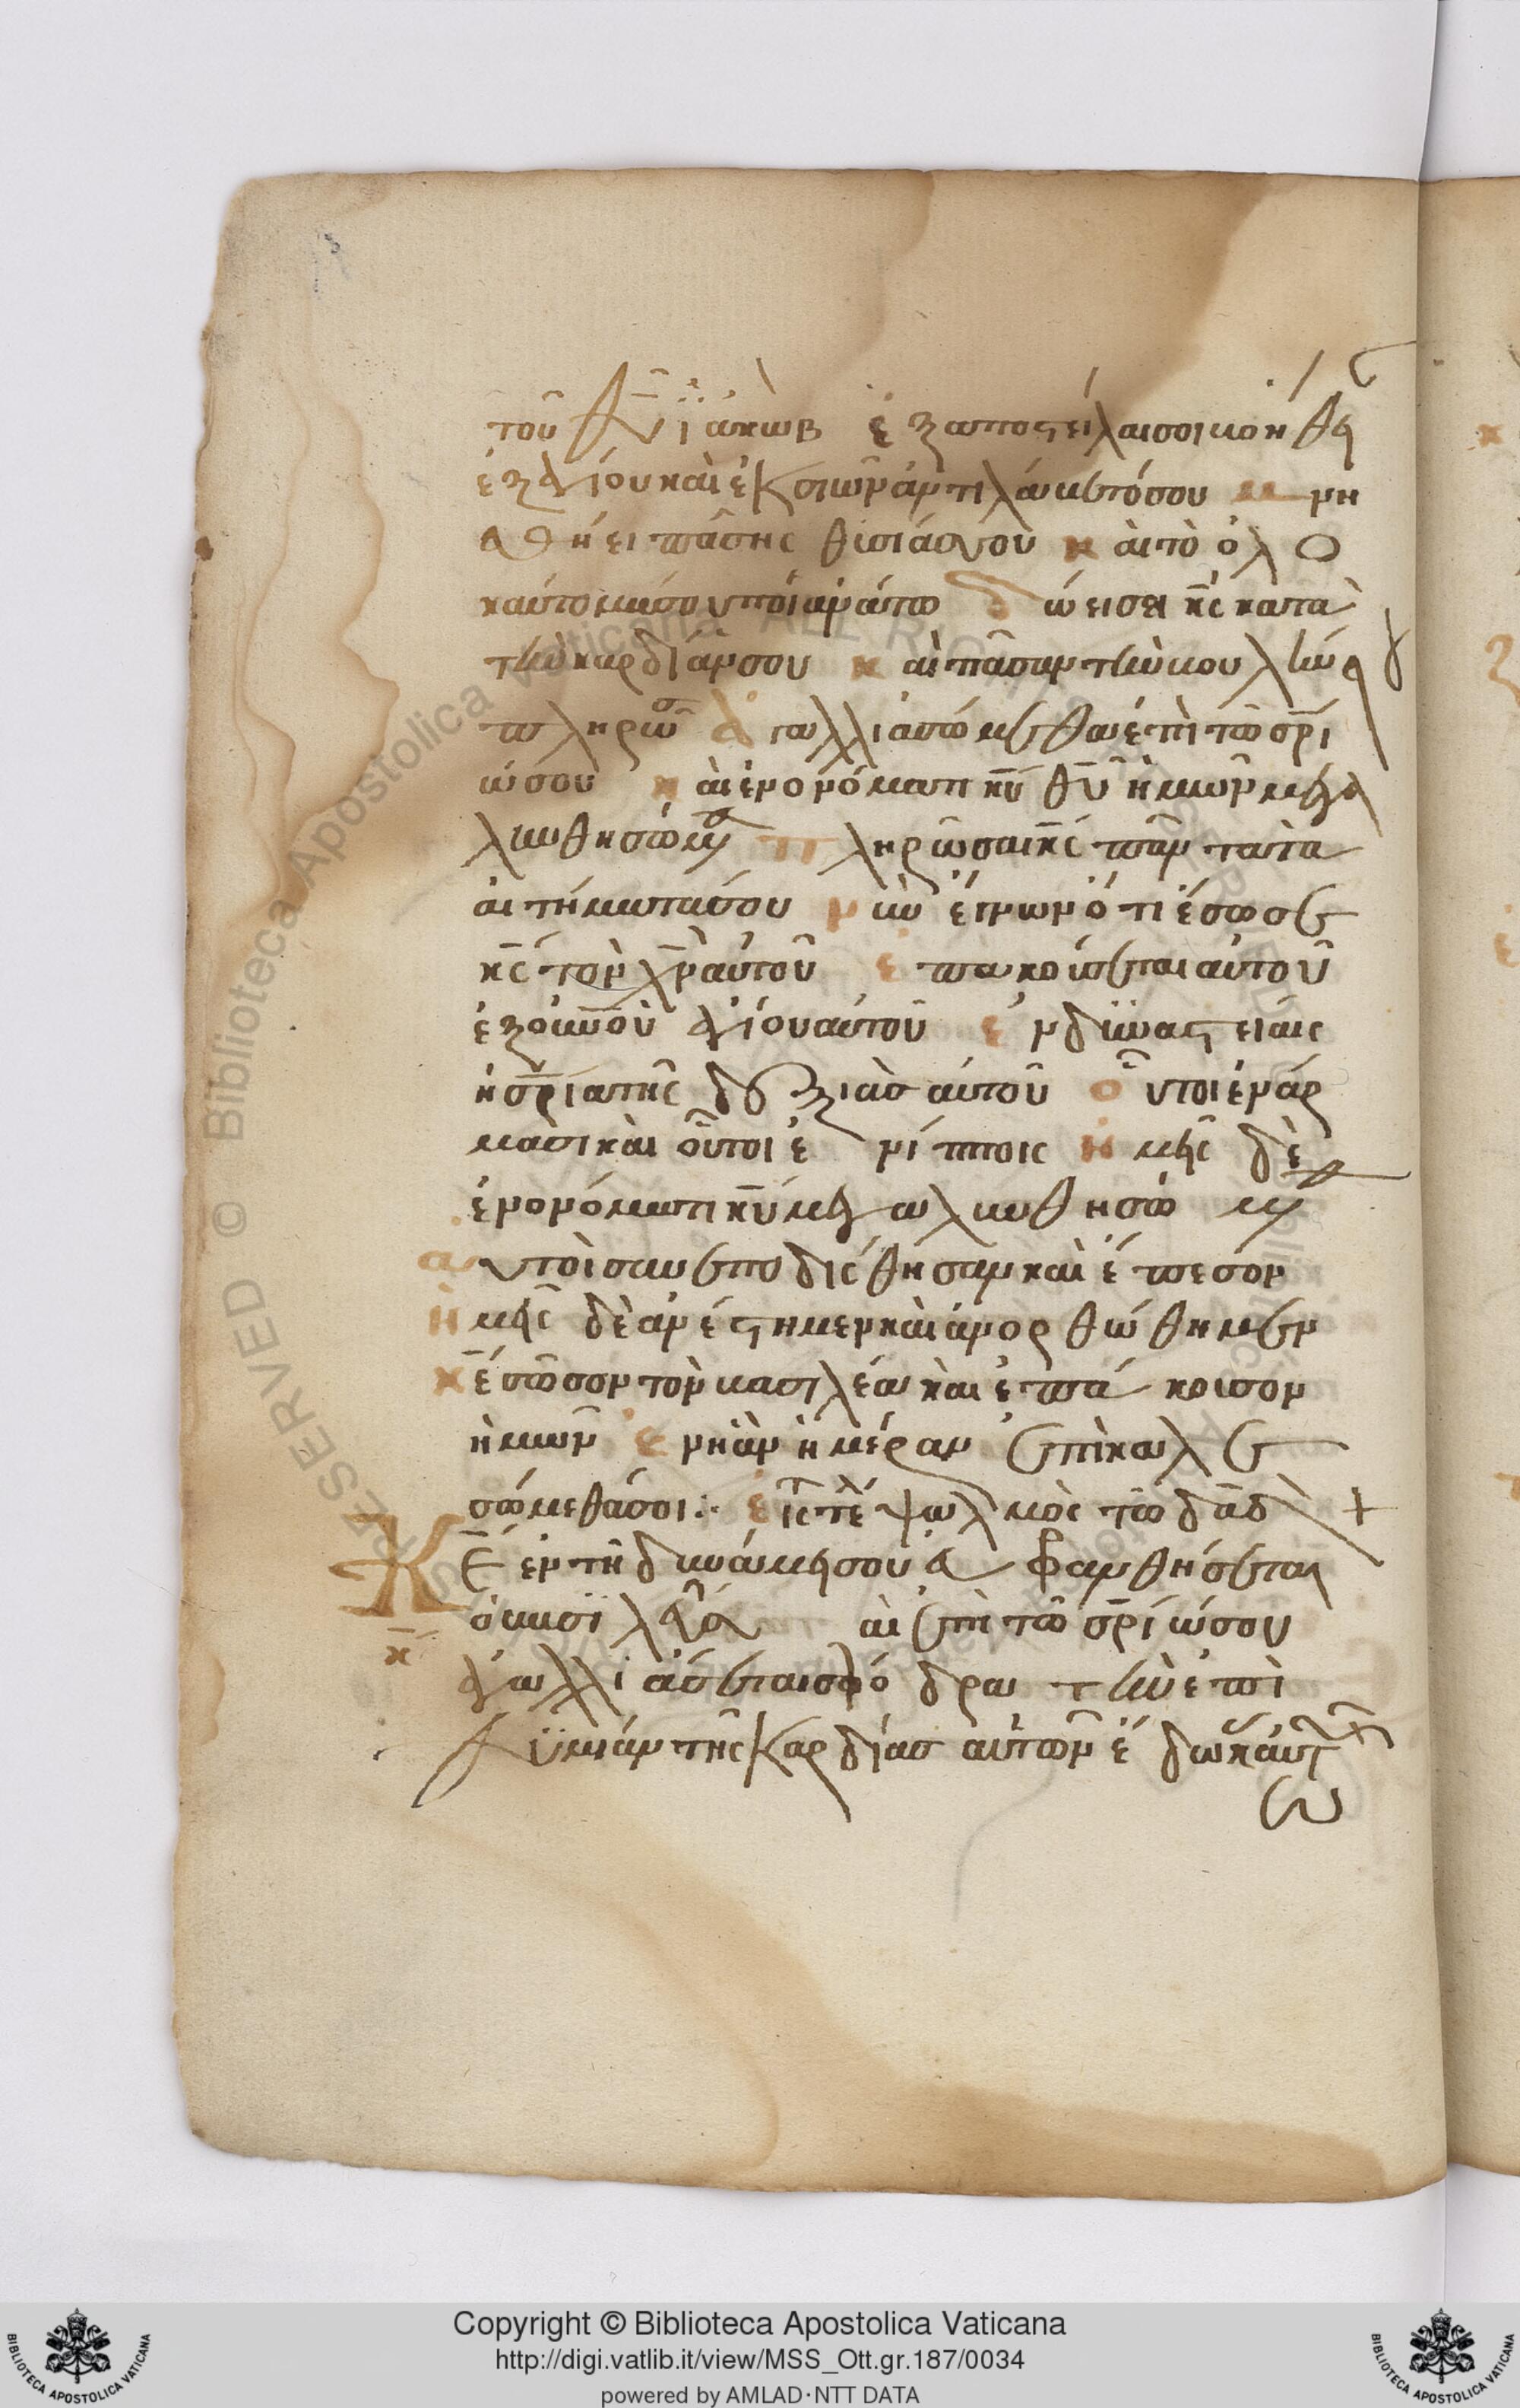 τοῦ θῦ ϊἀκὼβ ἐξαποστείλαι σοι βοήθει
ἐξ ἁγίου καὶ ἐκ σιὼν ἀντιλάβετό σου μνη
σθήει πάσης θισίας σοῦ καὶ τὸ ὁλο
καύτομά σου ποιανάτω δώει σοι κς κατὰ
τὴν καρδίαν σου καὶ πᾶσαν τὴν βουλήν σ
πληρώσ ἀγαλλιασώμεθα ἐπὶ τῶ σρί
ω σοῦ καὶ ἐν ονόματι κυ θυ ἡμῶν μεγα
λυνθησώμεθα πληρῶσαι κς πάντα τὰ
αἰτήματά σου νῦν ἔγνων ὅτι ἔσωσε
κς τὸν χν αὐτοῦ ἐπακούσεται αὐτοῦ
ἐξ ουνοῦ ἁγίου αὐτοῦ ἐν δϋναστείαις
ἡ σρία τῆς δεξιᾶς αὐτοῦ οὗτοι ἐν άρ
μασι καὶ οὗτοι ἐν ίπποις ἡμεῖς δὲ
ἐν ονόματι κυ μεγαλυνθησώμεθα
αυτοὶ συνεποδίσθησαν καὶ ἔπεσον
ἡμεῖς δὲ ἀνέστημεν καὶ ἀνορθώθημεν
κέ σῶσον τὸν βασιλέα καὶ ἐπάκουσον
ἡμῶν ἐν ἧ ὰν ἡμέραν ἐπικαλε
σώμεθά σοι:· εἰς τ τέλ ψαλμὸς τῶ δαδ
Κε ἐν τῆ δυνάμει σου ευφρανθήσεται
ὁ βασιλεῦσ καὶ ἐπὶ τῶ σρίω σου
ἀγαλλιάσεται σφόδρα τὴν ἐπι
θϋμίαν τῆς καρδίας αὐτοῦ ἔδωκασ αὐτ
ω
Copyright © Biblioteca Apostolica Vaticana
http://digi.vatlib.it/view/MSS_Ott.gr.187/0034
powered by AMLAD·NTT DATA